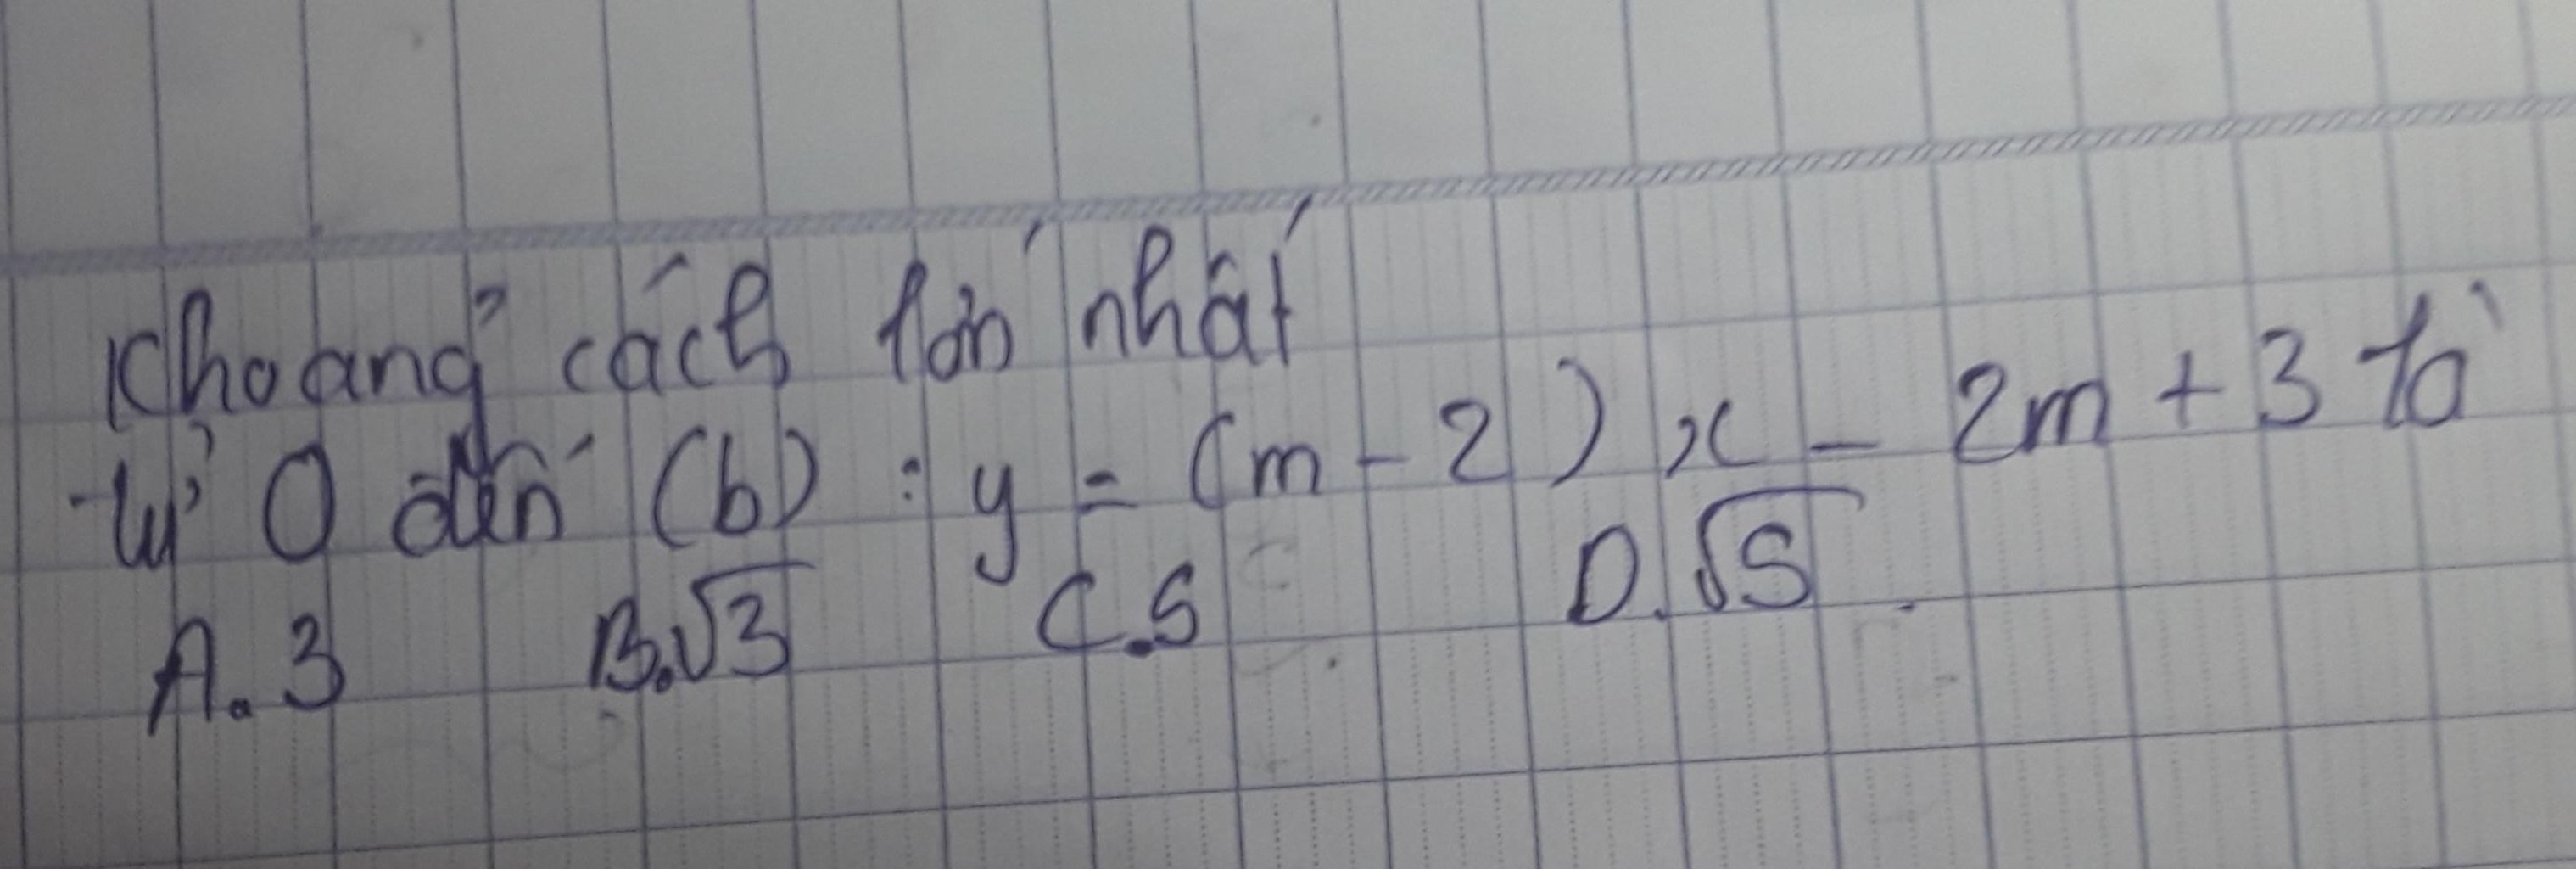 Khoảng cách lớn nhất
từ O đến (b) : y = (m - 2) x - 2m + 3 là
A. 3 B. √3 C. 5 D. √5